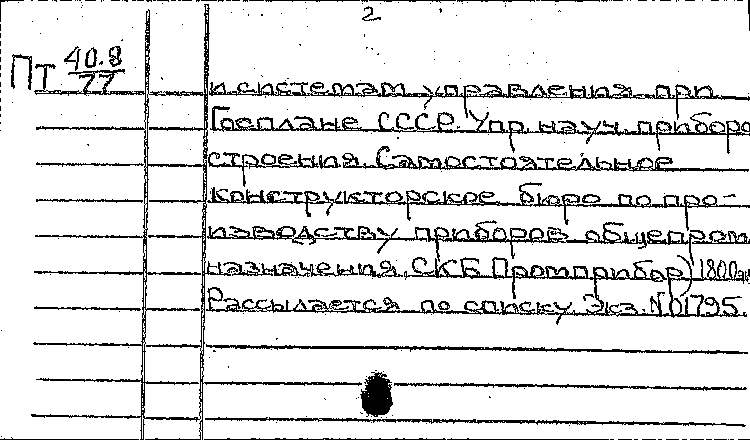 2
Пт 40.8/77
и системам управления при
Госплане СССР. Упр. науч. приборо
строения. Самостоятельное
конструкторское бюро по про-
изводству приборов общепром
назначения, СКБ Промприбор) 1800
Рассылается по списку Экз. N01795.